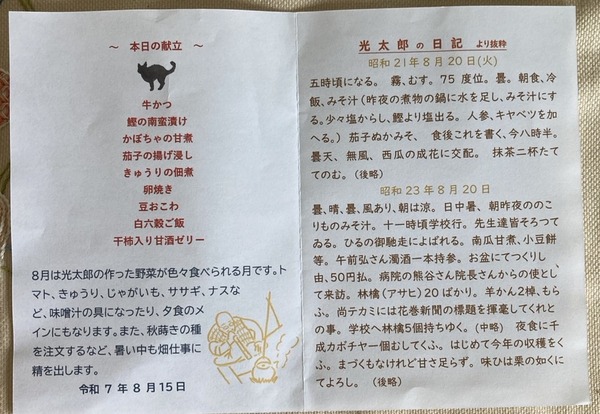 ～ 本日の献立 ～
牛かつ
鰹の南蛮漬け
かぼちゃの甘煮
茄子の揚げ浸し
きゅうりの佃煮
卵焼き
豆おこわ
白六穀ご飯
干柿入り甘酒ゼリー
8月は光太郎の作った野菜が色々食べられる月です。ト
マト、きゅうり、じゃがいも、ササギ、ナスな
ど、味噌汁の具になったり、夕食のメ
インにもなります。また、秋蒔きの種
を注文するなど、暑い中も畑仕事に
精を出します。
令和 7 年 8 月 15日
光太郎の日記 より抜粋
昭和 21年 8 月 20 日(火)
五時頃になる。 霧、むす。75 度位。曇。朝食、冷
飯、みそ汁(昨夜の煮物の鍋に水を足し、みそ汁にす
る。少々塩からし、鰹より塩出る。 人参、キヤベツを加
へる。) 茄子ぬかみそ、 食後これを書く、今八時半。
曇天、無風、西瓜の成花に交配。 抹茶二杯たて
てのむ。(後略)
昭和 23年 8 月 20 日
曇、晴、曇、風あり、朝は涼。 日中暑、 朝昨夜ののこ
りものみそ汁。 十一時頃学校行。 先生達皆そろつて
ゐる。ひるの御馳走によばれる。 南瓜甘煮、小豆餅
等。 午前弘さん濁酒一本持参。 お盆にてつくりし
由、50円払。 病院の熊谷さん院長さんからの使とし
て来訪。 林檎(アサヒ)20 ばかり。 羊かん2棹、もら
ふ。 尚テカミには花巻新聞の標題を揮毫してくれと
の事。学校へ林檎5個持ちゆく。(中略) 夜食に千
成カボチヤ一個むしてくふ。 はじめて今年の収穫をく
ふ。まづくもなけれど甘さ足らず。 味ひは栗の如くに
てよろし。 (後略)